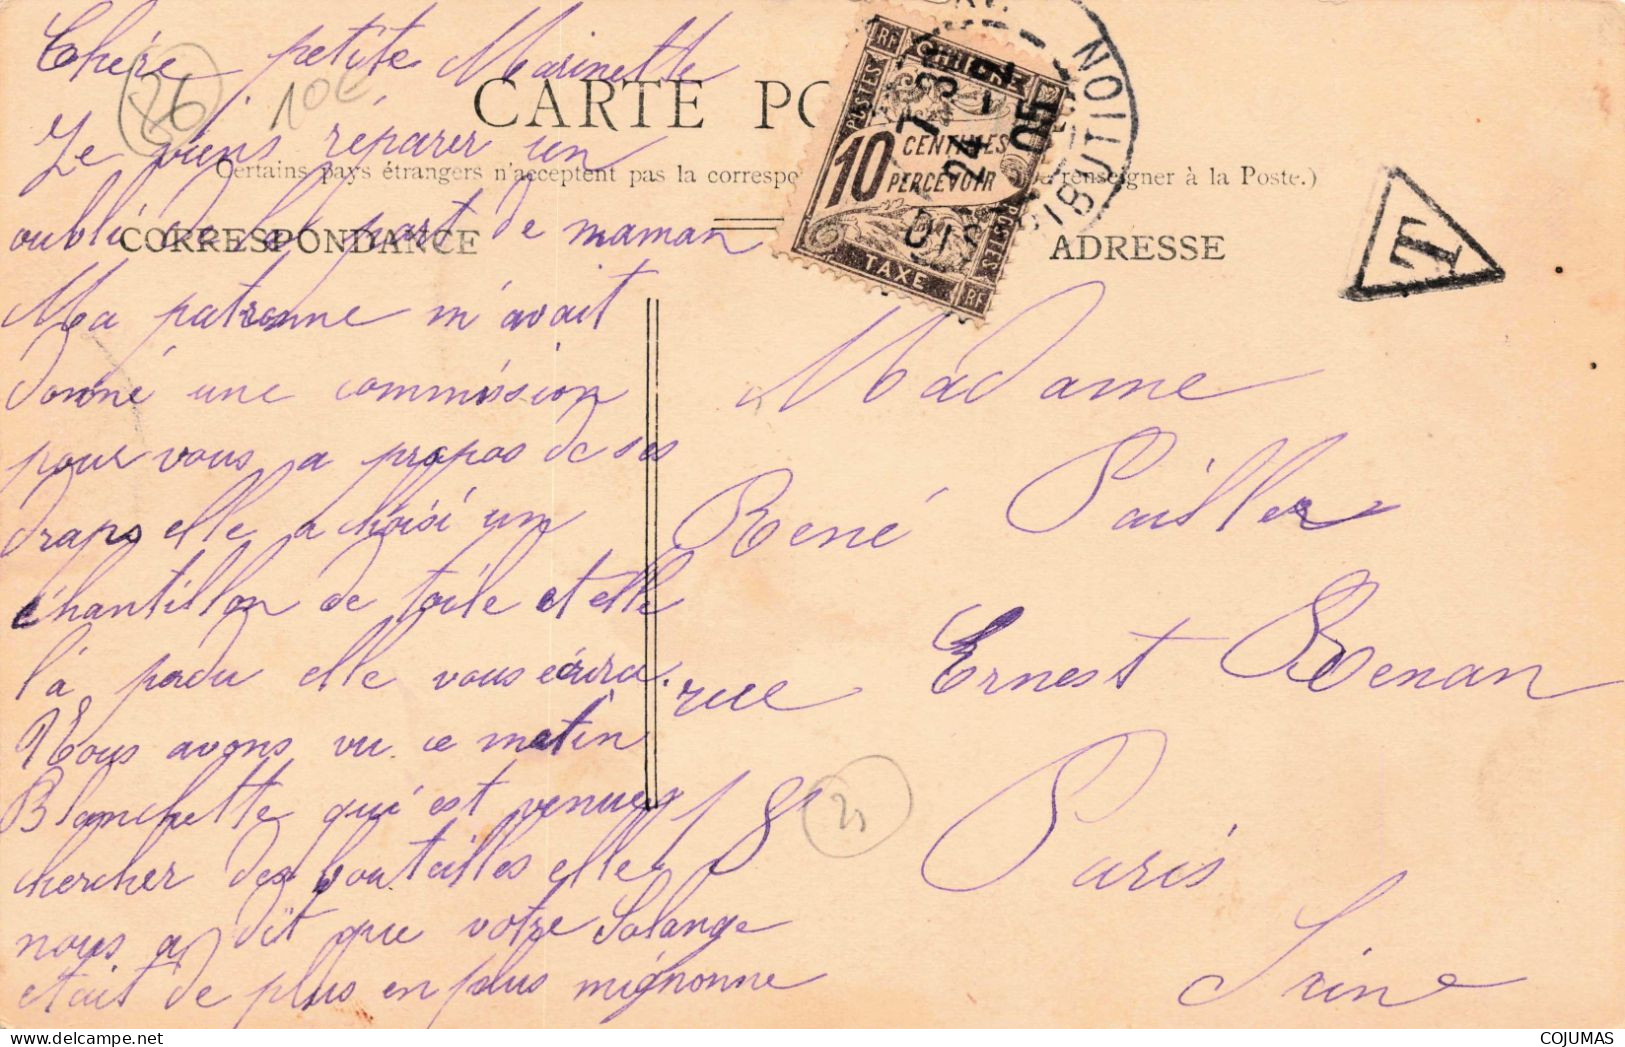 Chère petite Marinette
36
10€
CARTE PO
Je viens réparer un
Certains pays étrangers n'acceptent pas la correspo
renseigner à la Poste.)
oublié de la part de maman
CORRESPONDANCE
ADRESSE
Ma patronne m'avait
donné une commission
pour vous a propos de ses
draps elle a choisi un
échantillon de toile et elle
l'a perdu elle vous écrira.
Nous avons vu ce matin
Blanchette qui est venues
chercher des bouteilles elle
nous a dit que votre Solange
etait de plus en plus mignonne
RF
POSTES
CHIFFRE
10
CENTIMES
PERCEVOIR
TAXE
POSTES
RF
7 3
24 - 2
05
DISTRIBUTION
T
Madame
René Pailler
rue Ernest Renan
18
21
Paris
Seine
COJUMAS